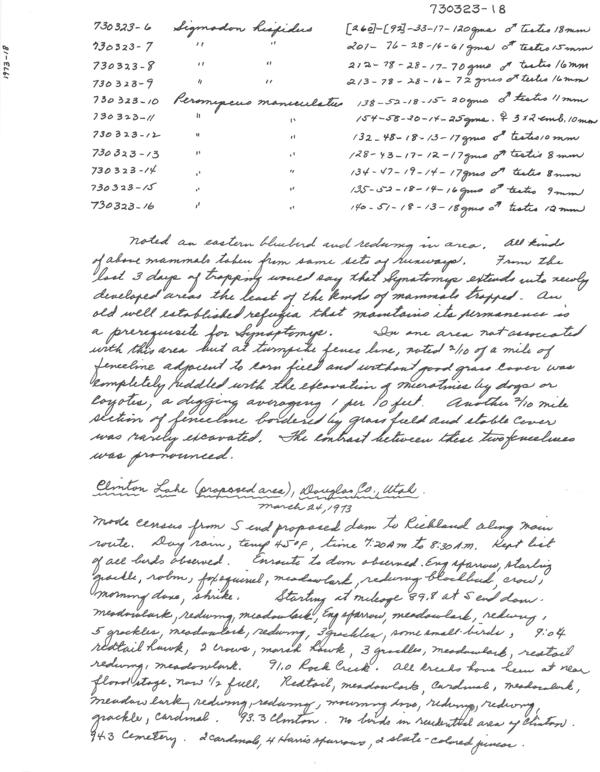 730323-18
1973-18
730323-6 Sigmodon hispidus [260]-[92]-33-17-120gms ♂ testis 18mm
730323-7 " " 201-76-28-16-61gms ♂ testis 15mm
730323-8 " " 212-78-28-17-70gms ♂ testis 16mm
730323-9 " " 213-78-28-16-72gms ♂ testes 16mm
730323-10 Peromyscus maniculatus 138-52-18-15-20gms ♂ testis 11mm
730323-11 " " 154-58-20-14-25gms. ♀ 3x2 emb. 10mm
730323-12 " " 132-48-18-13-17gms ♂ testis 10mm
730323-13 " " 128-43-17-12-17gms ♂ testis 8mm
730323-14 " " 134-47-19-14-17gms ♂ testes 8mm
730323-15 " " 135-52-18-14-16gms ♂ testes 9mm
730323-16 " " 140-51-18-13-18gms ♂ testes 12mm
Noted an eastern bluebird and redwing in area. All kinds
of above mammals taken from same sets of runways. From the
last 3 days of trapping would say that Synatomys extends into newly
developed areas the least of the kinds of mammals trapped. An
old well established refugia that maintains its permanence is
a prerequisite for Synaptomys. In one area not associated
with this area but at turnpike fence line, noted 2/10 of a mile of
fenceline adjacent to corn field and without good grass cover was
completely riddled with the excavation of microtines by dogs or
coyotes, a digging averaging 1 per 10 feet. Another 2/10 mile
section of fenceline bordered by grass field and stable cover
was rarely excavated. The contrast between these two fencelines
was pronounced.
Clinton Lake (proposed area), Douglas Co., Utah.
March 24, 1973
Made census from S end proposed dam to Richland along main
route. Day rain, temp 45°F, time 7:20AM to 8:30AM. Kept list
of all birds observed. Enroute to dam observed Eng sparrow, starling
grackle, robin, fox squirrel, meadowlark, redwing blackbird, crow,
morning dove, shrike. Starting at mileage 89.8 at S end dam.
meadowlark, redwing, meadowlark, Eng sparrow, meadowlark, redwing,
5 grackles, meadowlark, redwing, 3 grackles, some small birds, 90.4
redtail hawk, 2 crows, marsh hawk, 3 grackles, meadowlark, redtail
redwing, meadowlark. 91.0 Rock Creek. All creeks have been at near
flood stage, now 1/2 full. Redtail, meadowlark, cardinal, meadowlark,
meadowlark, redwing, redwing, mourning dove, redwing, redwing,
grackle, cardinal. 93.3 Clinton. No birds in residential area of Clinton.
94.3 Cemetery. 2 cardinals, 4 Harris sparrows, 2 slate-colored juncos.